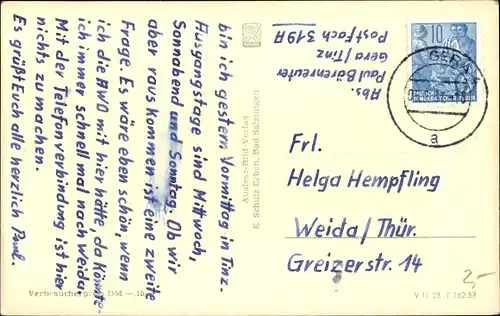 bin ich gestern Vormittag in Tinz.
Ausgangstage sind Mittwoch,
Sonnabend und Sonntag. Ob wir
aber raus kommen ist eine zweite
Frage. Es wäre eben schön, wenn
ich die AWO mit hier hätte, da könnte
ich immer schnell mal nach Weida.
Mit der Telefonverbindung ist hier
nichts zu machen.
Es grüßt Euch alle herzlich Paul.
Abs.
Paul Bärenreuter
Gera/Tinz
Postfach 319A
10
GERA
a
Auslese-Bild-Verlag
E. Schulz Erben, Bad Salzungen
Frl.
Helga Hempfling
Weida/Thür.
Greizerstr. 14
2,-
Verbraucherpreis DM